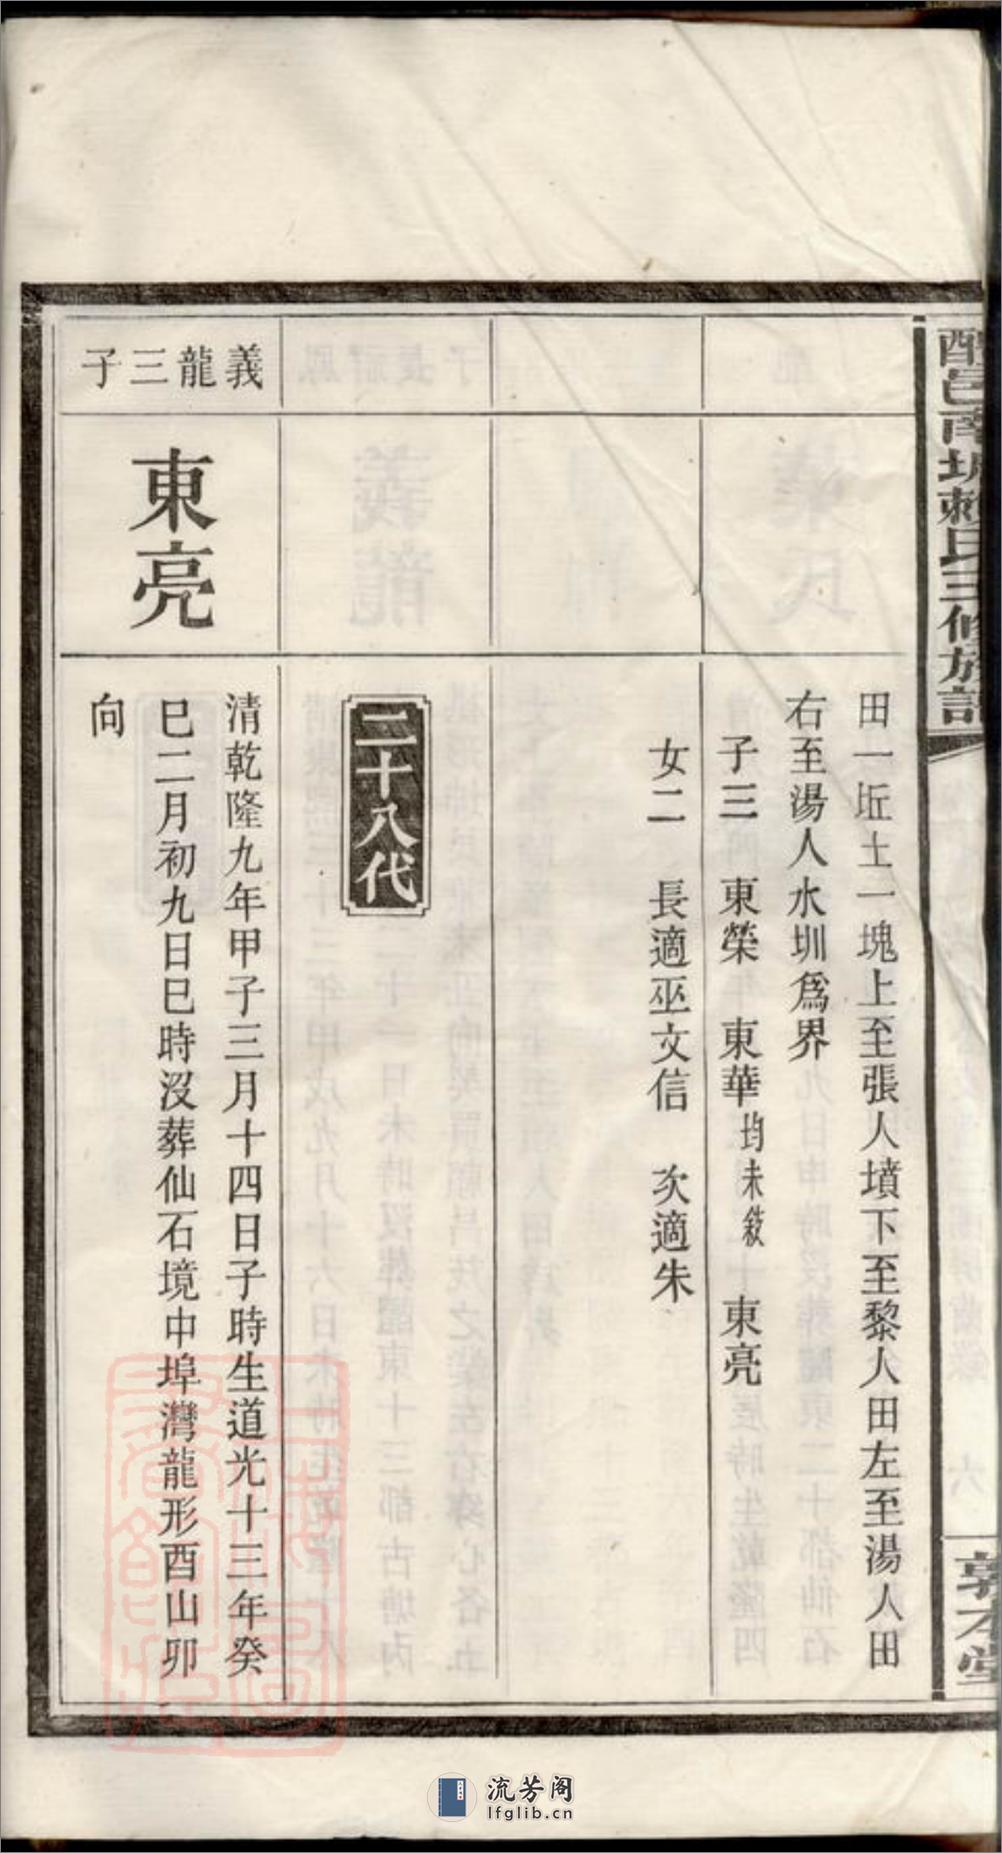 醴邑南城賴氏三修族記
敦本堂
田一坵土一塊上至張人墳下至黎人田左至湯人田
右至湯人水圳爲界
子三 東榮 東華均未敘 東亮
女二 長適巫文信 次適朱
二十八代
義龍三子
東亮
清乾隆九年甲子三月十四日子時生道光十三年癸
巳二月初九日巳時沒葬仙石境中埠灣龍形酉山卯
向
流芳阁
lfglib.cn